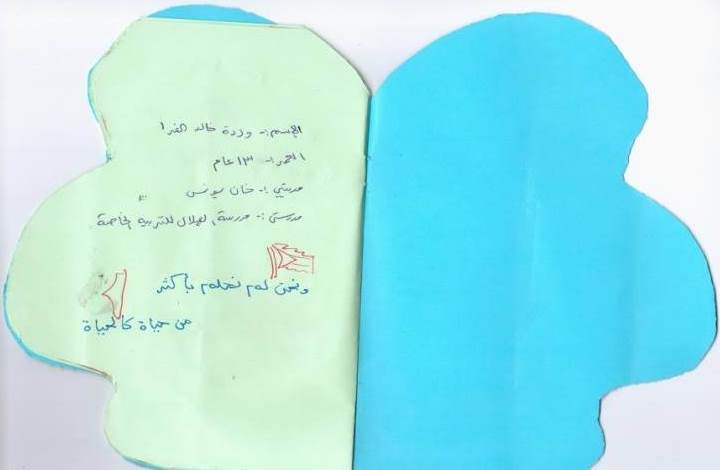 الإسم :- وردة خالد الفرا
العمر :- ١٣ عام
مدينتي :- خان يونس
مدرستي :- مدرسة الهلال للتربية الخاصة
ونحن لم نحلم بأكثر
من حياة كالحياة